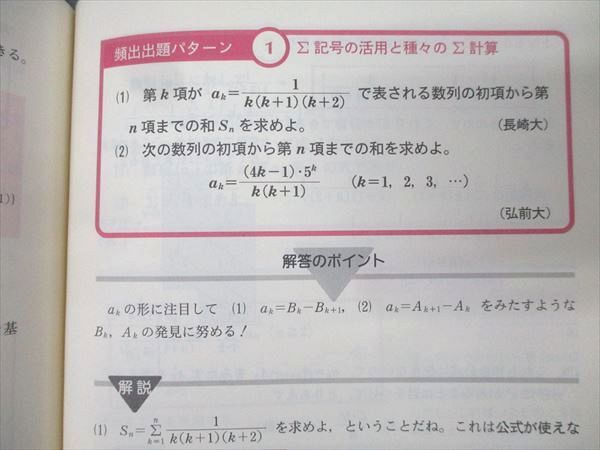 きる。
頻出出題パターン 1 Σ記号の活用と種々のΣ計算
(1) 第k項が a_k=1/{k(k+1)(k+2)} で表される数列の初項から第
n項までの和S_nを求めよ。 (長崎大)
(2) 次の数列の初項から第n項までの和を求めよ。
a_k={(4k−1)・5^k}/{k(k+1)} (k=1, 2, 3, …)
(弘前大)
1)}
解答のポイント
a_kの形に注目して (1) a_k=B_k−B_{k+1}, (2) a_k=A_{k+1}−A_k をみたすような
B_k, A_kの発見に努める!
基
解説
(1) S_n=Σ_{k=1}^{n} 1/{k(k+1)(k+2)} を求めよ, ということだね。これは公式が使えな